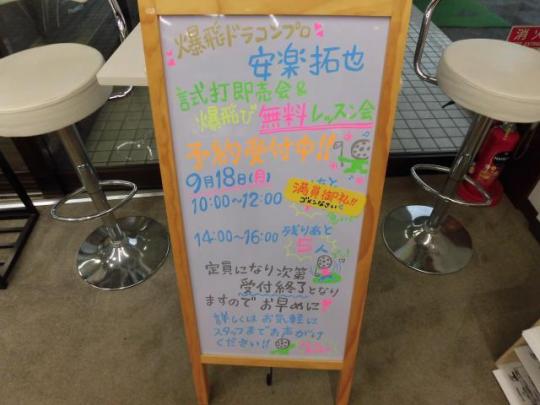 爆飛ドラコンプロ
安楽拓也
試打即売会&
爆飛び無料レッスン会
予約受付中!!
9月18日(月)
10:00~12:00
満員御礼!!
ゴメンなさい
14:00~16:00 残りあと
5人
定員になり次第
受付終了となり
ますのでお早めに
詳しくはお気軽に
スタッフまでお声がけ
ください!!
消火